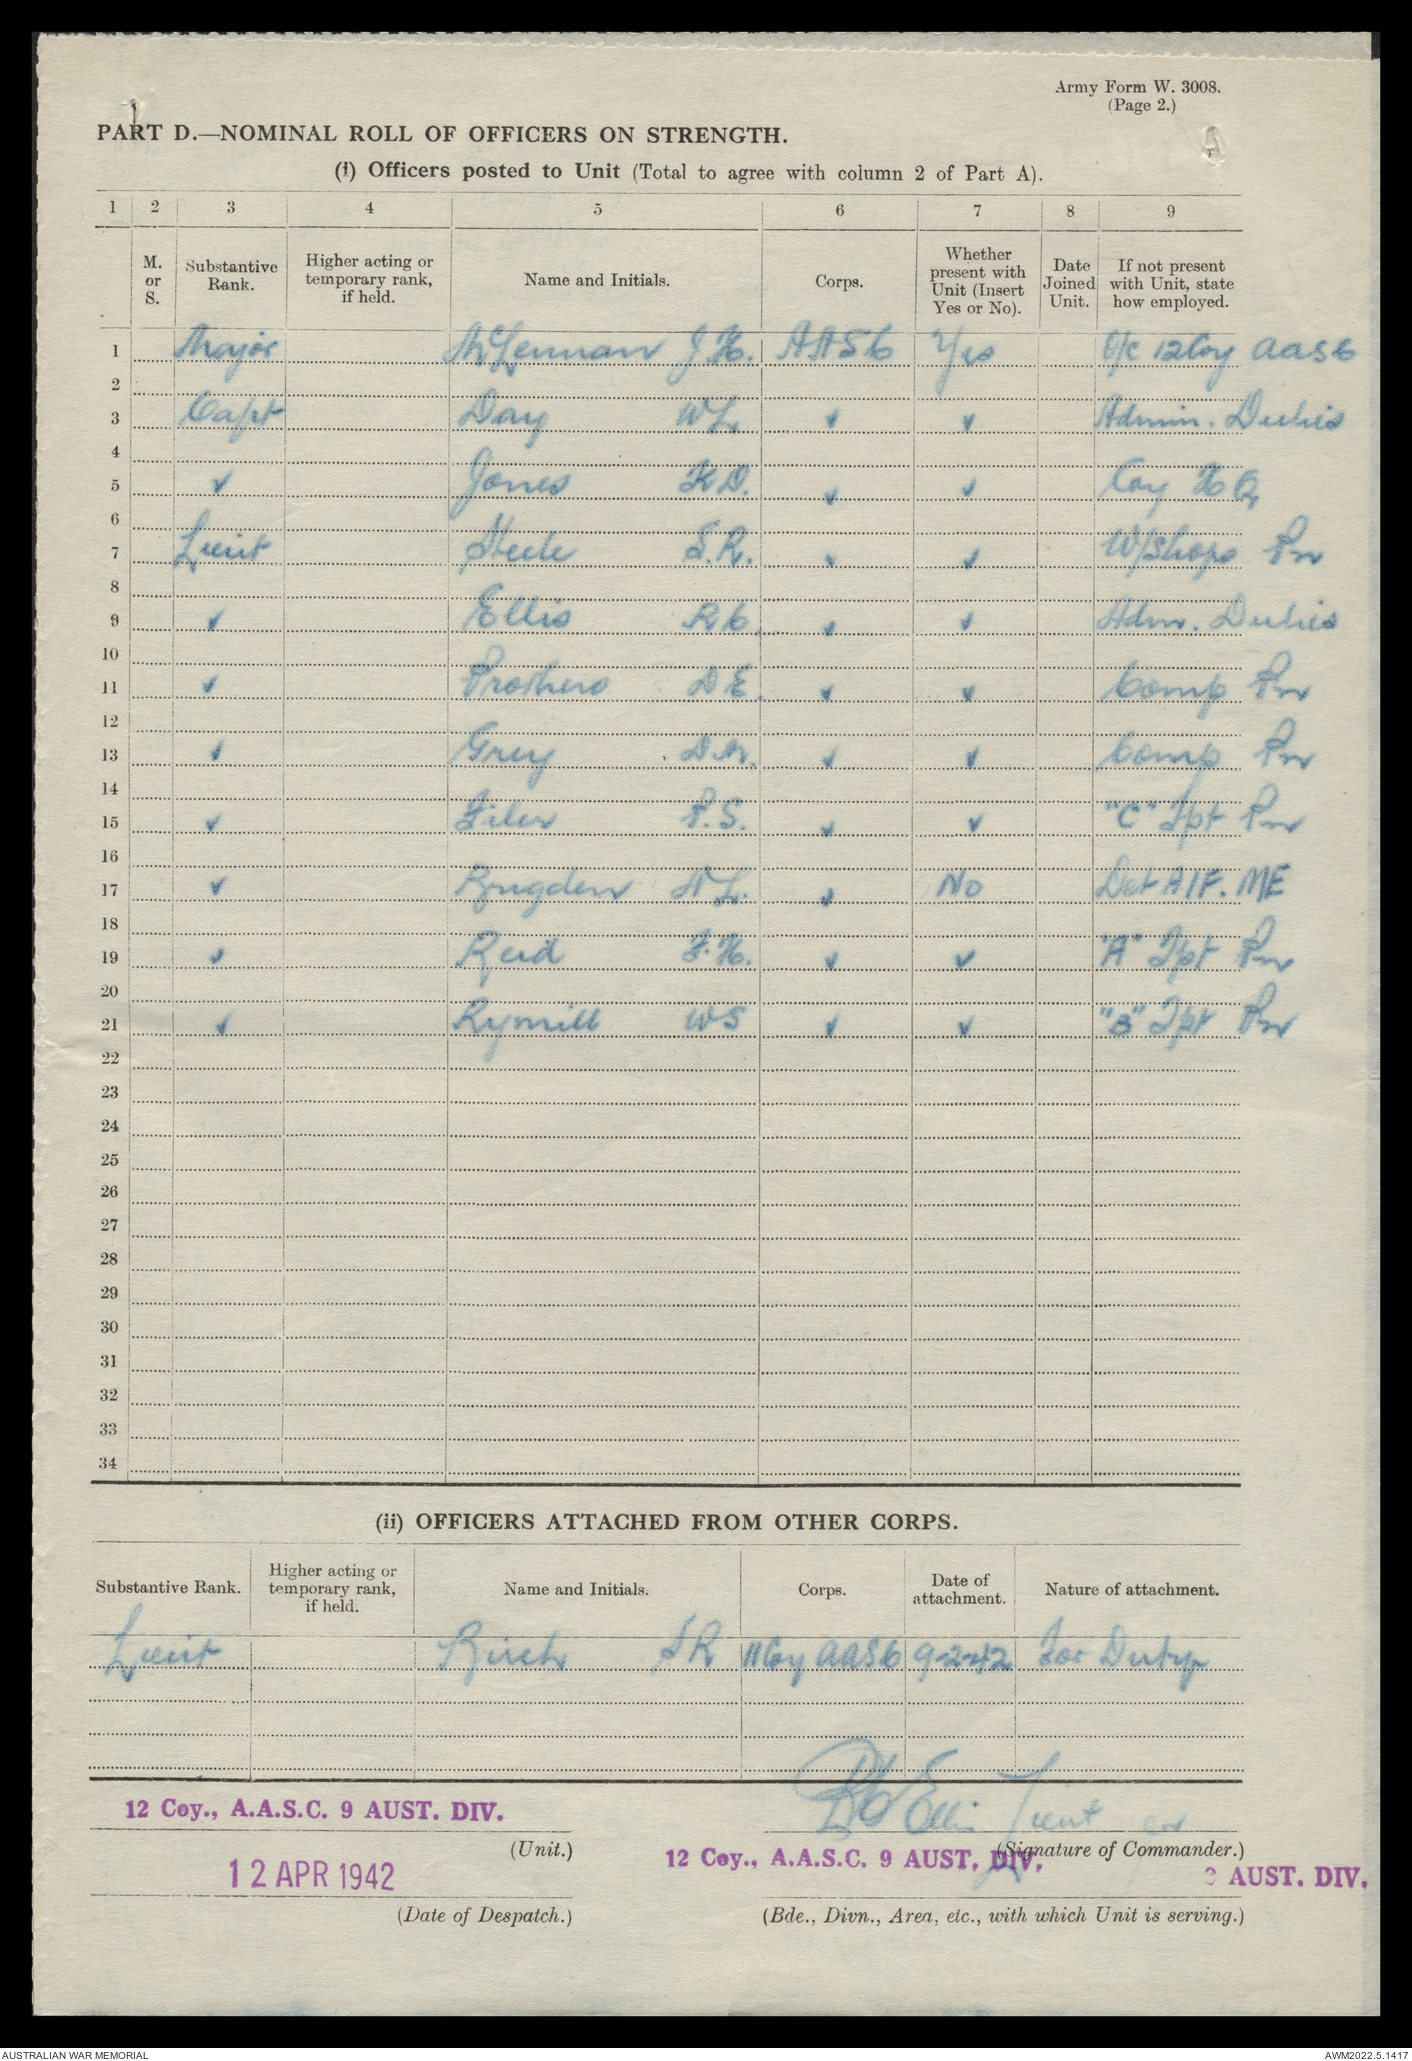 Army Form W. 3008.
(Page 2.)
PART D.—NOMINAL ROLL OF OFFICERS ON STRENGTH.
(i) Officers posted to Unit (Total to agree with column 2 of Part A).
1 2 3 4 5 6 7 8 9
M. or S. Substantive Rank. Higher acting or temporary rank, if held. Name and Initials. Corps. Whether present with Unit (Insert Yes or No). Date Joined Unit. If not present with Unit, state how employed.
1 Major McLennan J.H. AASC Yes O/C 12 Coy AASC
2
3 Capt Day WL ✓ ✓ Admin. Duties
4
5 ✓ Jones K.D. ✓ ✓ Coy HQ
6
7 Lieut Steele S.R. ✓ ✓ W/Shops Pn
8
9 ✓ Ellis R C. ✓ ✓ Adm. Duties
10
11 ✓ Prothero D E. ✓ ✓ Comp Pn
12
13 ✓ Grey ✓ ✓ Comp Pn
14
15 ✓ Filer P.S. ✓ ✓ "C" Tpt Pn
16
17 ✓ Brugden N L. ✓ No Det AIF. ME
18
19 ✓ Reid F.H. ✓ ✓ "A" Tpt Pn
20
21 ✓ Rymill WS ✓ ✓ "B" Tpt Pn
22
23
24
25
26
27
28
29
30
31
32
33
34
(ii) OFFICERS ATTACHED FROM OTHER CORPS.
Substantive Rank. Higher acting or temporary rank, if held. Name and Initials. Corps. Date of attachment. Nature of attachment.
Lieut Birch S R 11 Coy AASC 9-2-42 For Duty
RC Ellis Lieut
12 Coy., A.A.S.C. 9 AUST. DIV.
(Unit.) (Signature of Commander.)
12 Coy., A.A.S.C. 9 AUST. DIV.
12 APR 1942 9 AUST. DIV.
(Date of Despatch.) (Bde., Divn., Area, etc., with which Unit is serving.)
AUSTRALIAN WAR MEMORIAL AWM2022.5.1417